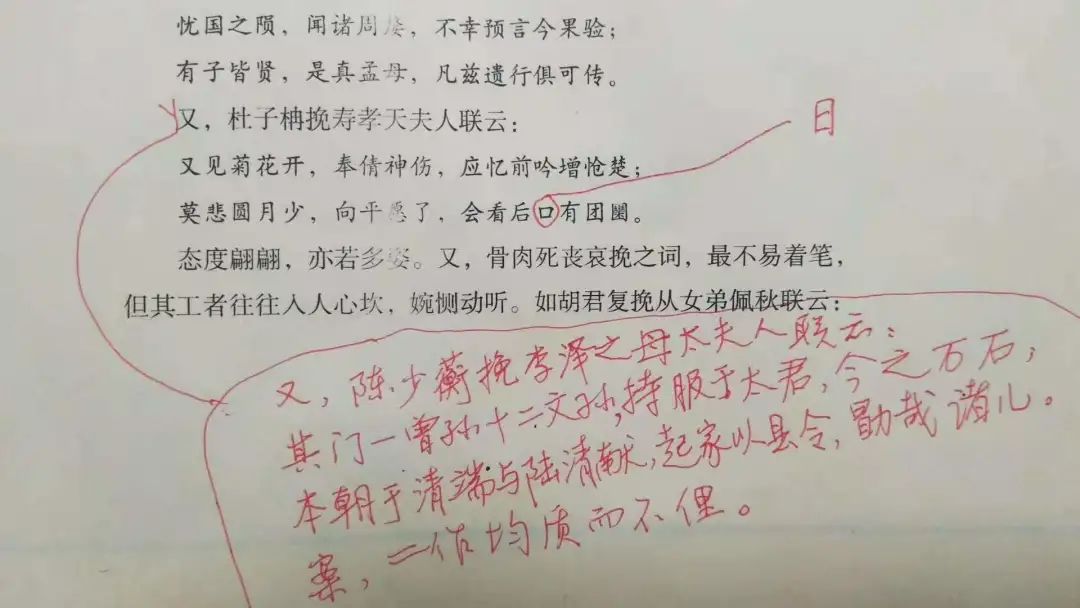 忧国之陨，闻诸周嫠，不幸预言今果验；
有子皆贤，是真孟母，凡兹遗行俱可传。
又，杜子柟挽寿孝天夫人联云：
日
又见菊花开，奉倩神伤，应忆前吟增怆楚；
莫悲圆月少，向平愿了，会看后口有团圞。
态度翩翩，亦若多姿。又，骨肉死丧哀挽之词，最不易着笔，
但其工者往往入人心坎，婉恻动听。如胡君复挽从女弟佩秋联云：
又，陈少蘅挽李泽之母太夫人联云：
其门一曾孙十二文孙，持服于太君，今之万石；
本朝于清端与陆清献，起家以县令，勖哉诸儿。
案，二作均质而不俚。